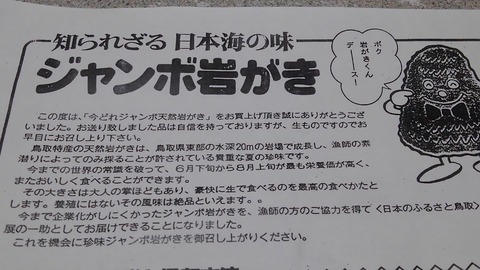 知られざる 日本海の味
ジャンボ岩がき
ボク
岩がきくん
デース!
この度は、「今どれジャンボ天然岩がき」をお買上げ頂き誠にありがとうござ
いました。お送り致しました品は自信を持っておりますが、生ものですのでお
早目にお召し上り下さい。
鳥取特産の天然岩がきは、鳥取県東部の水深20mの岩場で成長し、漁師の素
潜りによってのみ採ることが許されている貴重な夏の珍味です。
今までの世界の常識を破って、6月下旬から8月上旬が最も栄養価が高く、
またおいしく食べることができます。
その大きさは大人の掌ほどもあり、豪快に生で食べるのを最高の食べかたと
します。養殖にはないその風味は絶品といえます。。
今まで企業化がしにくかったジャンボ岩がきを、漁師の方のご協力を得て〈日本のふるさと鳥取〉
展の一助としてお届けできることになりました。
これを機会に珍味ジャンボ岩がきを御召し上がりください。